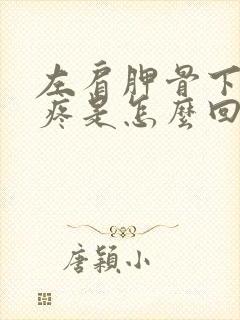 左肩胛骨下
疼是怎麼回
唐穎小